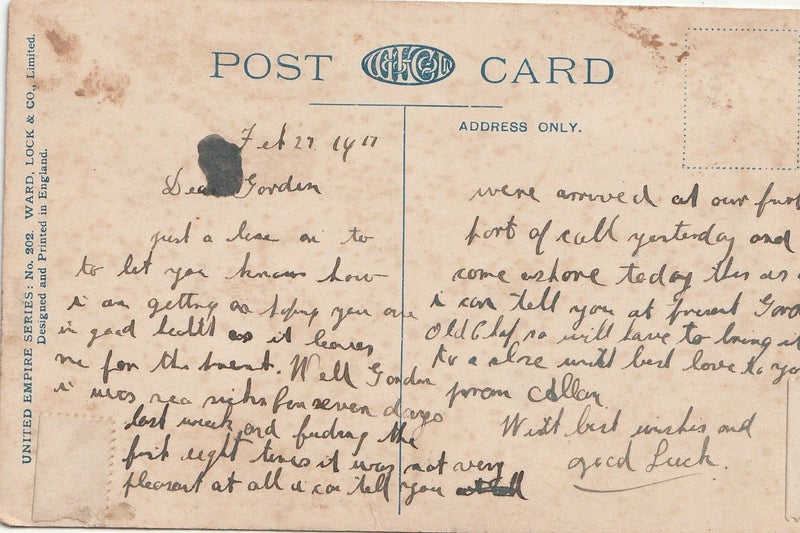 UNITED EMPIRE SERIES: No. 202. WARD, LOCK & CO., Limited.
Designed and Printed in England.
POST CARD
ADDRESS ONLY.
Feb 27 1911
Dear Gordon
just a line on to
to let you know how
i am getting on hoping you are
in good healtt as it leaves
me for the present. Well Gordon
i was sea sick for seven days
last week and feeding the
fish eight times it was not very
pleasant at all i can tell you
were arrived at our first
port of call yesterday and
come ashore today this as
i can tell you at present Gord
Old Chap so will have to bring it
to a close with best love to yo
from Allan
With best wishes and
good Luck.